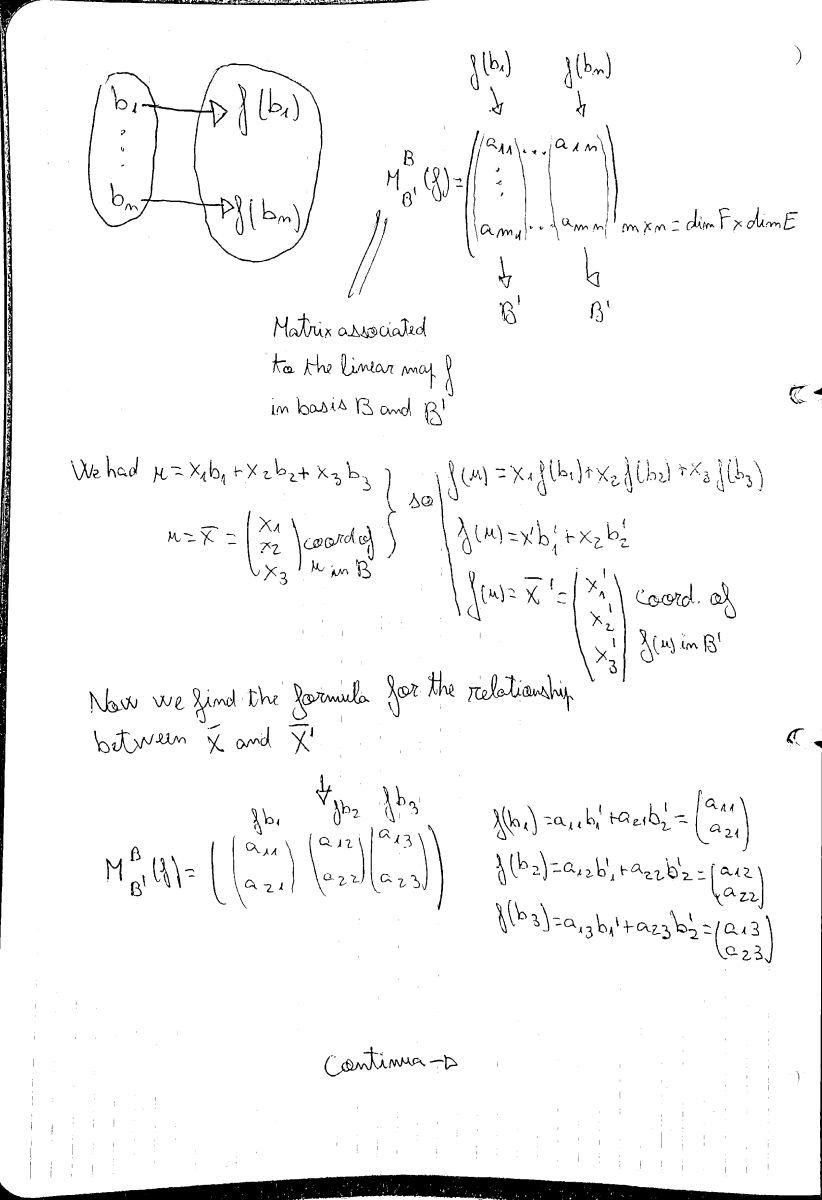 b₁ → f(b₁)
⋮
bₙ → f(bₙ)
f(b₁) f(bₙ)
↓ ↓
M^B_B' (f) = ((a₁₁ ⋮ aₘ₁) ... (a₁ₙ aₘₙ)) m×n = dim F × dim E
↓ ↓
B' B'
Matrix associated
to the linear map f
in basis B and B'
We had u = x₁b₁ + x₂b₂ + x₃b₃ } so | f(u) = x₁f(b₁) + x₂f(b₂) + x₃f(b₃)
f(u) = x'b₁' + x₂b₂'
u = x̄ = (x₁ x₂ x₃) coord of u in B
f(u) = x̄' = (x₁' x₂' x₃') coord. of f(u) in B'
Now we find the formula for the relationship
between x̄ and x̄'
↓
fb₁ fb₂ fb₃
M^B_B' (f) = ((a₁₁ a₂₁) (a₁₂ a₂₂) (a₁₃ a₂₃))
f(b₁) = a₁₁b₁' + a₂₁b₂' = (a₁₁ a₂₁)
f(b₂) = a₁₂b₁' + a₂₂b₂' = (a₁₂ a₂₂)
f(b₃) = a₁₃b₁' + a₂₃b₂' = (a₁₃ a₂₃)
Continua →